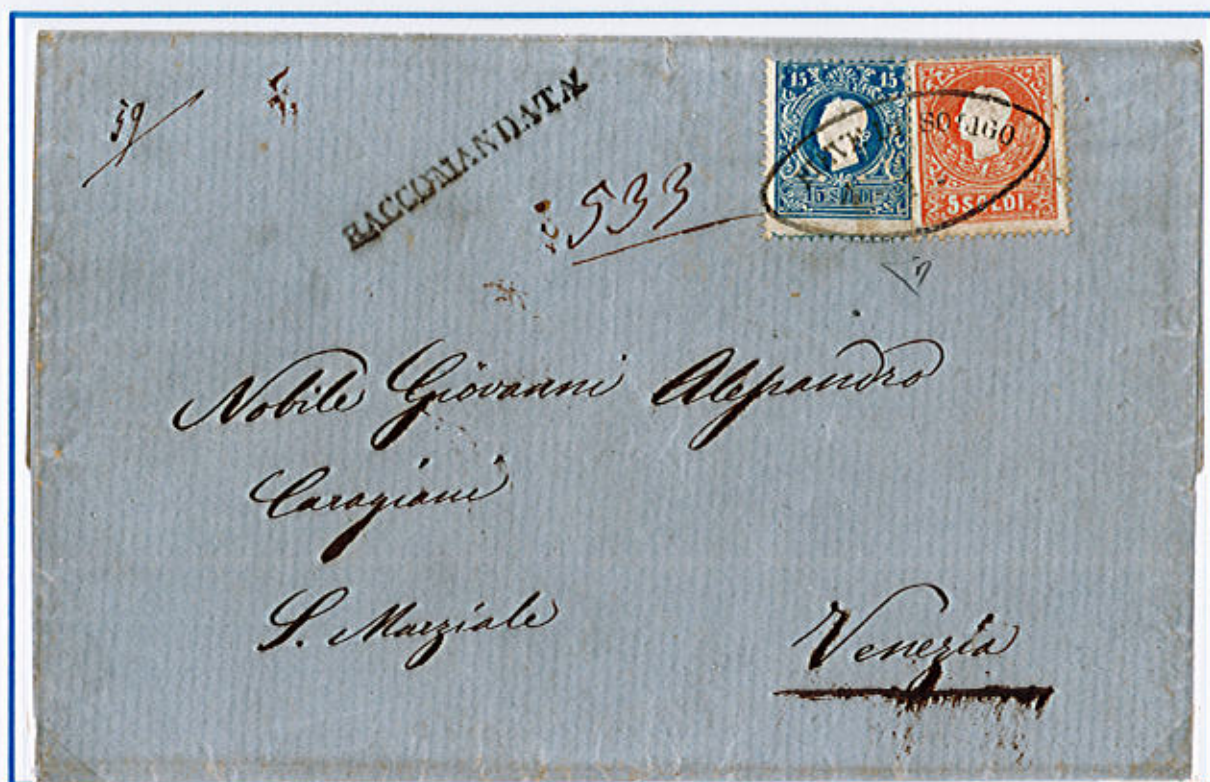 59
RACCOMANDATA
533
15 15
15 SOLDI
5 SOLDI.
PIEVE DI SOLIGO
Nobile Giovanni Alessandro
Caragiani
S. Marziale
Venezia